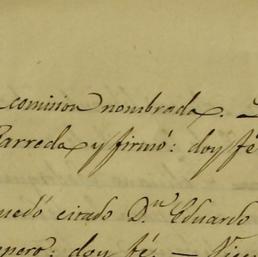 comision nombrada.
Barreda y firmó: doy fé
quedó citado D.ⁿ Eduardo
doy fé. —